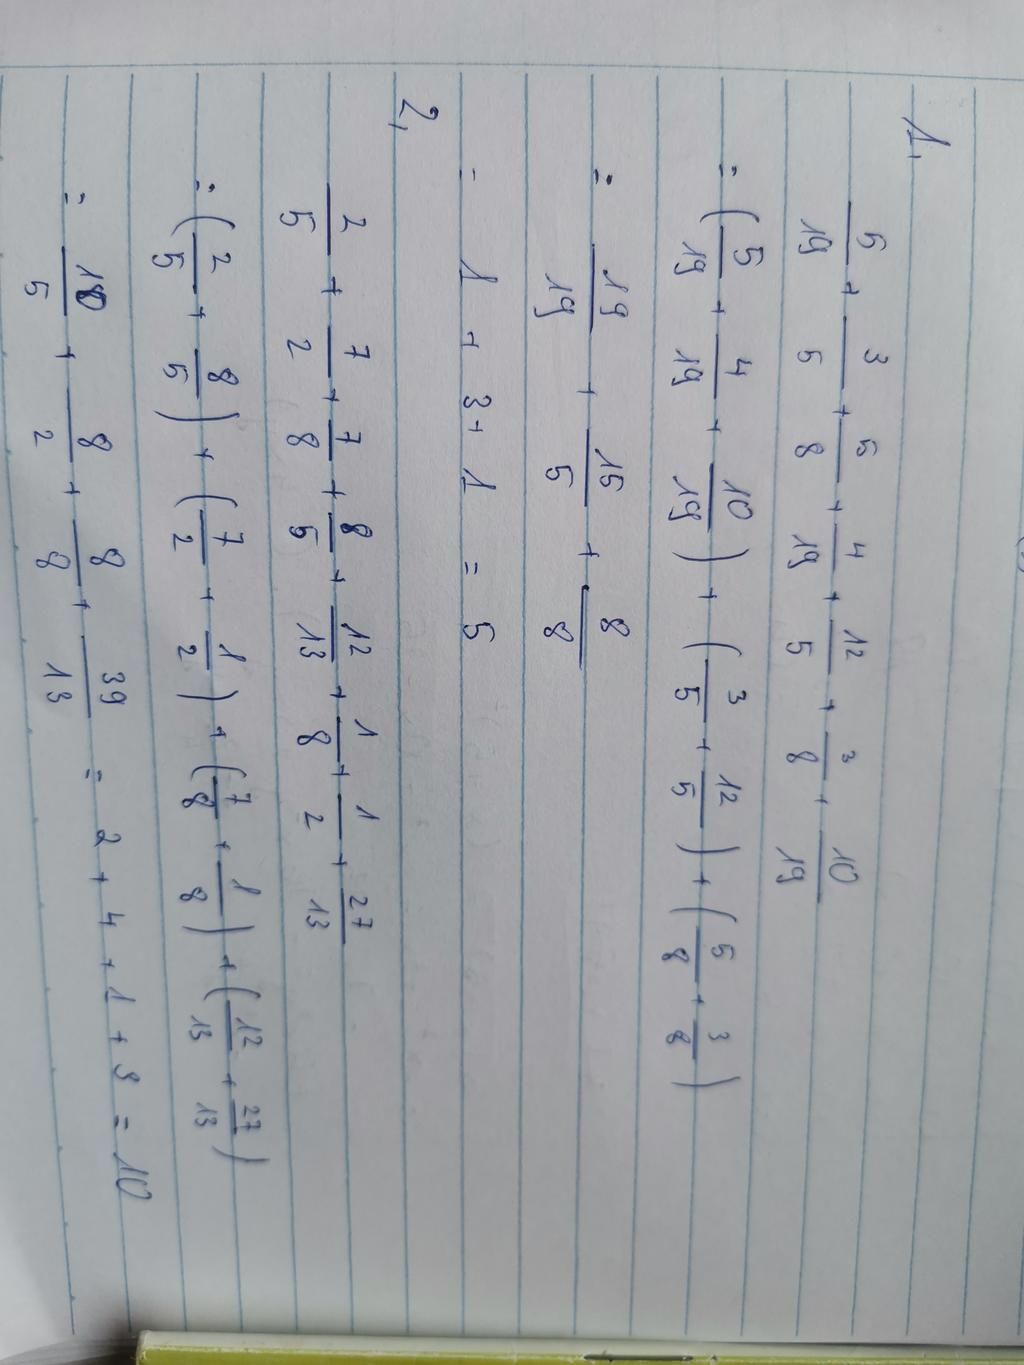 1,
5/19 + 3/5 + 5/8 + 4/19 + 12/5 + 3/8 + 10/19
= (5/19 + 4/19 + 10/19) + (3/5 + 12/5) + (5/8 + 3/8)
= 19/19 + 15/5 + 8/8
= 1 + 3 + 1 = 5
2,
2/5 + 7/2 + 7/8 + 8/5 + 12/13 + 1/8 + 1/2 + 27/13
= (2/5 + 8/5) + (7/2 + 1/2) + (7/8 + 1/8) + (12/13 + 27/13)
= 10/5 + 8/2 + 8/8 + 39/13 = 2 + 4 + 1 + 3 = 10